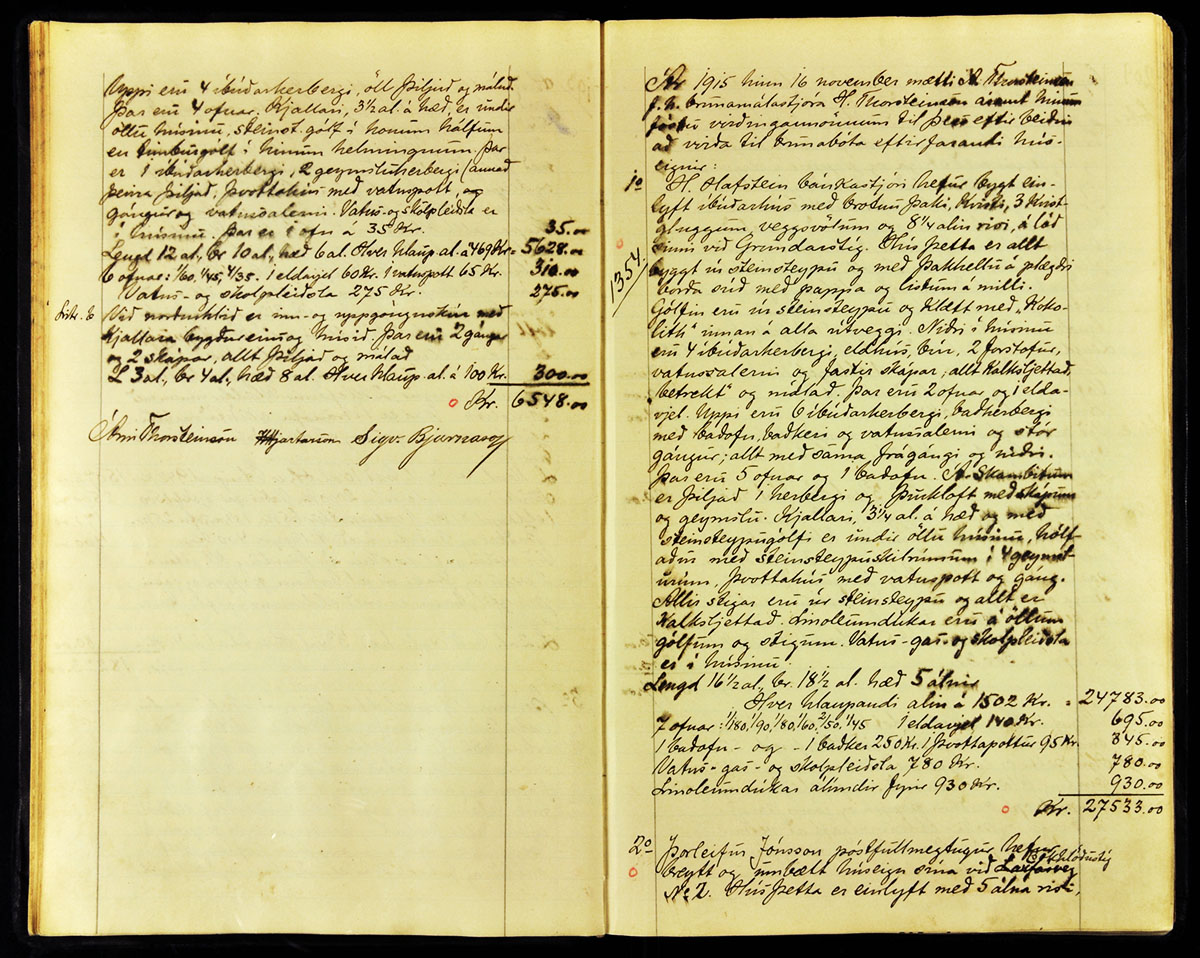 Uppi eru 4 íbúðarherbergi, öll þiljuð og máluð.
Þar eru 4 ofnar. Kjallari, 3½ al. á hæð, er undir
öllu húsinu, steinst. gólf í honum hálfum
en timburgólf í hinum helmingnum. Þar
er 1 íbúðarherbergi, 2 geymsluherbergi (annað
þeirra þiljað, þvottahús með vatnspott, og
gángur og vatnsalerni. Vatns- og skólpleiðsla er
í húsinu. Þar er 1 ofn á 35 Kr. 35.00
Lengd 12 al., br 10 al., hæð 6 al. Hver hlaup. al. á 469 Kr = 5628.00
6 ofnar: 1/60, 1/45, 4/35. 1 eldavjel 60 Kr. 1 vatnspott 65 Kr. 310.00
Vatns- og skolpleiðsla 275 Kr. 275.00
Litr. b Við norðurhlið er inn- og uppgönguskúr með
kjallara bygður eins og húsið. Þar eru 2 gángar
og 2 skápar, allt þiljað og málað
L 3 al., br 4 al., hæð 8 al. Hver hlaup. al. á 100 Kr. 300.00
Kr. 6548.00
Árni Thorsteinson Hjartarson Sigv. Bjarnason
Ár 1915 hinn 16 november mætti Á. Thorsteinson
f. h. brunamálastjóra H. Thorsteinson ásamt hinum
föstu virðingamönnum til þess eftir beiðni
að virða til brunabóta eftirfarandi hús-
eignir:
1o H. Hafstein bánkastjóri hefur bygt ein-
lyft íbúðarhús með brotnu þaki, kvisti, 3 kvist-
gluggum, veggsvölum og 8¼ alin risi, á lóð
sinni við Grundarstíg. Hús þetta er allt
1354. byggt úr steinsteypu og með þakhellu á plægðri
borða súð með pappa og listum á milli.
Gólfin eru úr steinsteypu og klætt með „Koko-
lith“ innan á alla útveggi. Niðri í húsinu
eru 4 íbúðarherbergi, eldhús, búr, 2 forstofur,
vatnssalerni og fastir skápar; allt kalksljettað,
„betrekt“ og málað. Þar eru 2 ofnar og 1 elda-
vjel. Uppi eru 6 íbúðarherbergi, baðherbergi
með baðofn, baðkeri og vatnssalerni og stór
gángur; allt með sama frágángi og niðri.
Þar eru 5 ofnar og 1 baðofn. Á Skambitum
er þiljað 1 herbergi og þurkloft með skápum
og geymslu. Kjallari, 3¼ al. á hæð og með
steinsteypugólfi er undir öllu húsinu, hólf-
aður með steinsteypuskilrúmum í 4 geymsl-
urúm, þvottahús með vatnspott og gáng.
Allir stigar eru úr steinsteypu og allt er
kalksljettað. Linoleumdúkar eru á öllum
gólfum og stigum. Vatns- gas- og skolpleiðsla
er í húsinu.
Lengd 16½ al., br. 18½ al. hæð 5 álnir
Hver hlaupandi alin á 1502 Kr. = 24783.00
7 ofnar: 1/180, 1/90, 1/80, 1/60, 2/50, 1/45 1 eldavjel 140 Kr. 695.00
1 baðofn - og - 1 baðker 250 Kr. 1 þvottapottur 95 Kr. 345.00
Vatns- gas- og skolpleiðsla 780 Kr. 780.00
Linoleumdúkar álímdir fyrir 930 Kr. 930.00
Kr. 27533.00
2o Þorleifur Jónsson póstfullmegtugur hefur
breytt og umbætt húseign sína við Laufásveg
No 2. Hús þetta er einlyft með 5 álna risi,